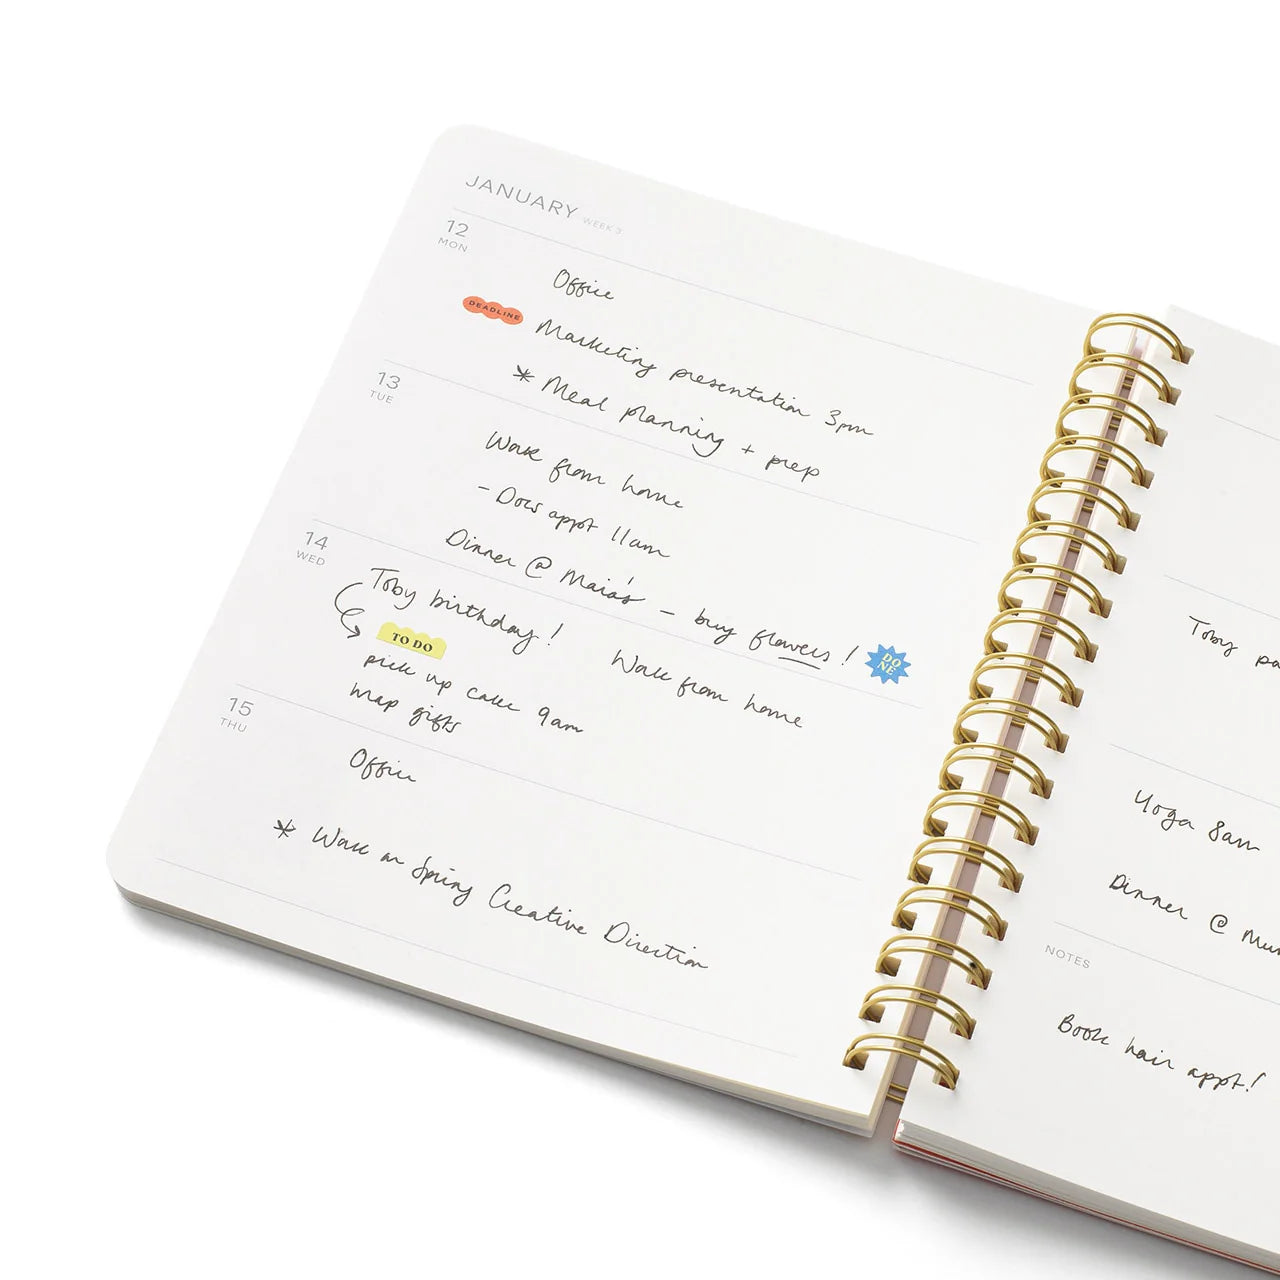 JANUARY WEEK 3
12
MON
Office
DEADLINE
Marketing presentation 3pm
* Meal planning + prep
13
TUE
Work from home
- Docs appt 11am
Dinner @ Maia's - buy flowers!
DO
NE
14
WED
Toby birthday!
Work from home
TO DO
pick up cake 9am
wrap gifts
15
THU
Office
* Work on Spring Creative Direction
Toby
Yoga 8am
Dinner @
NOTES
Book hair appt!